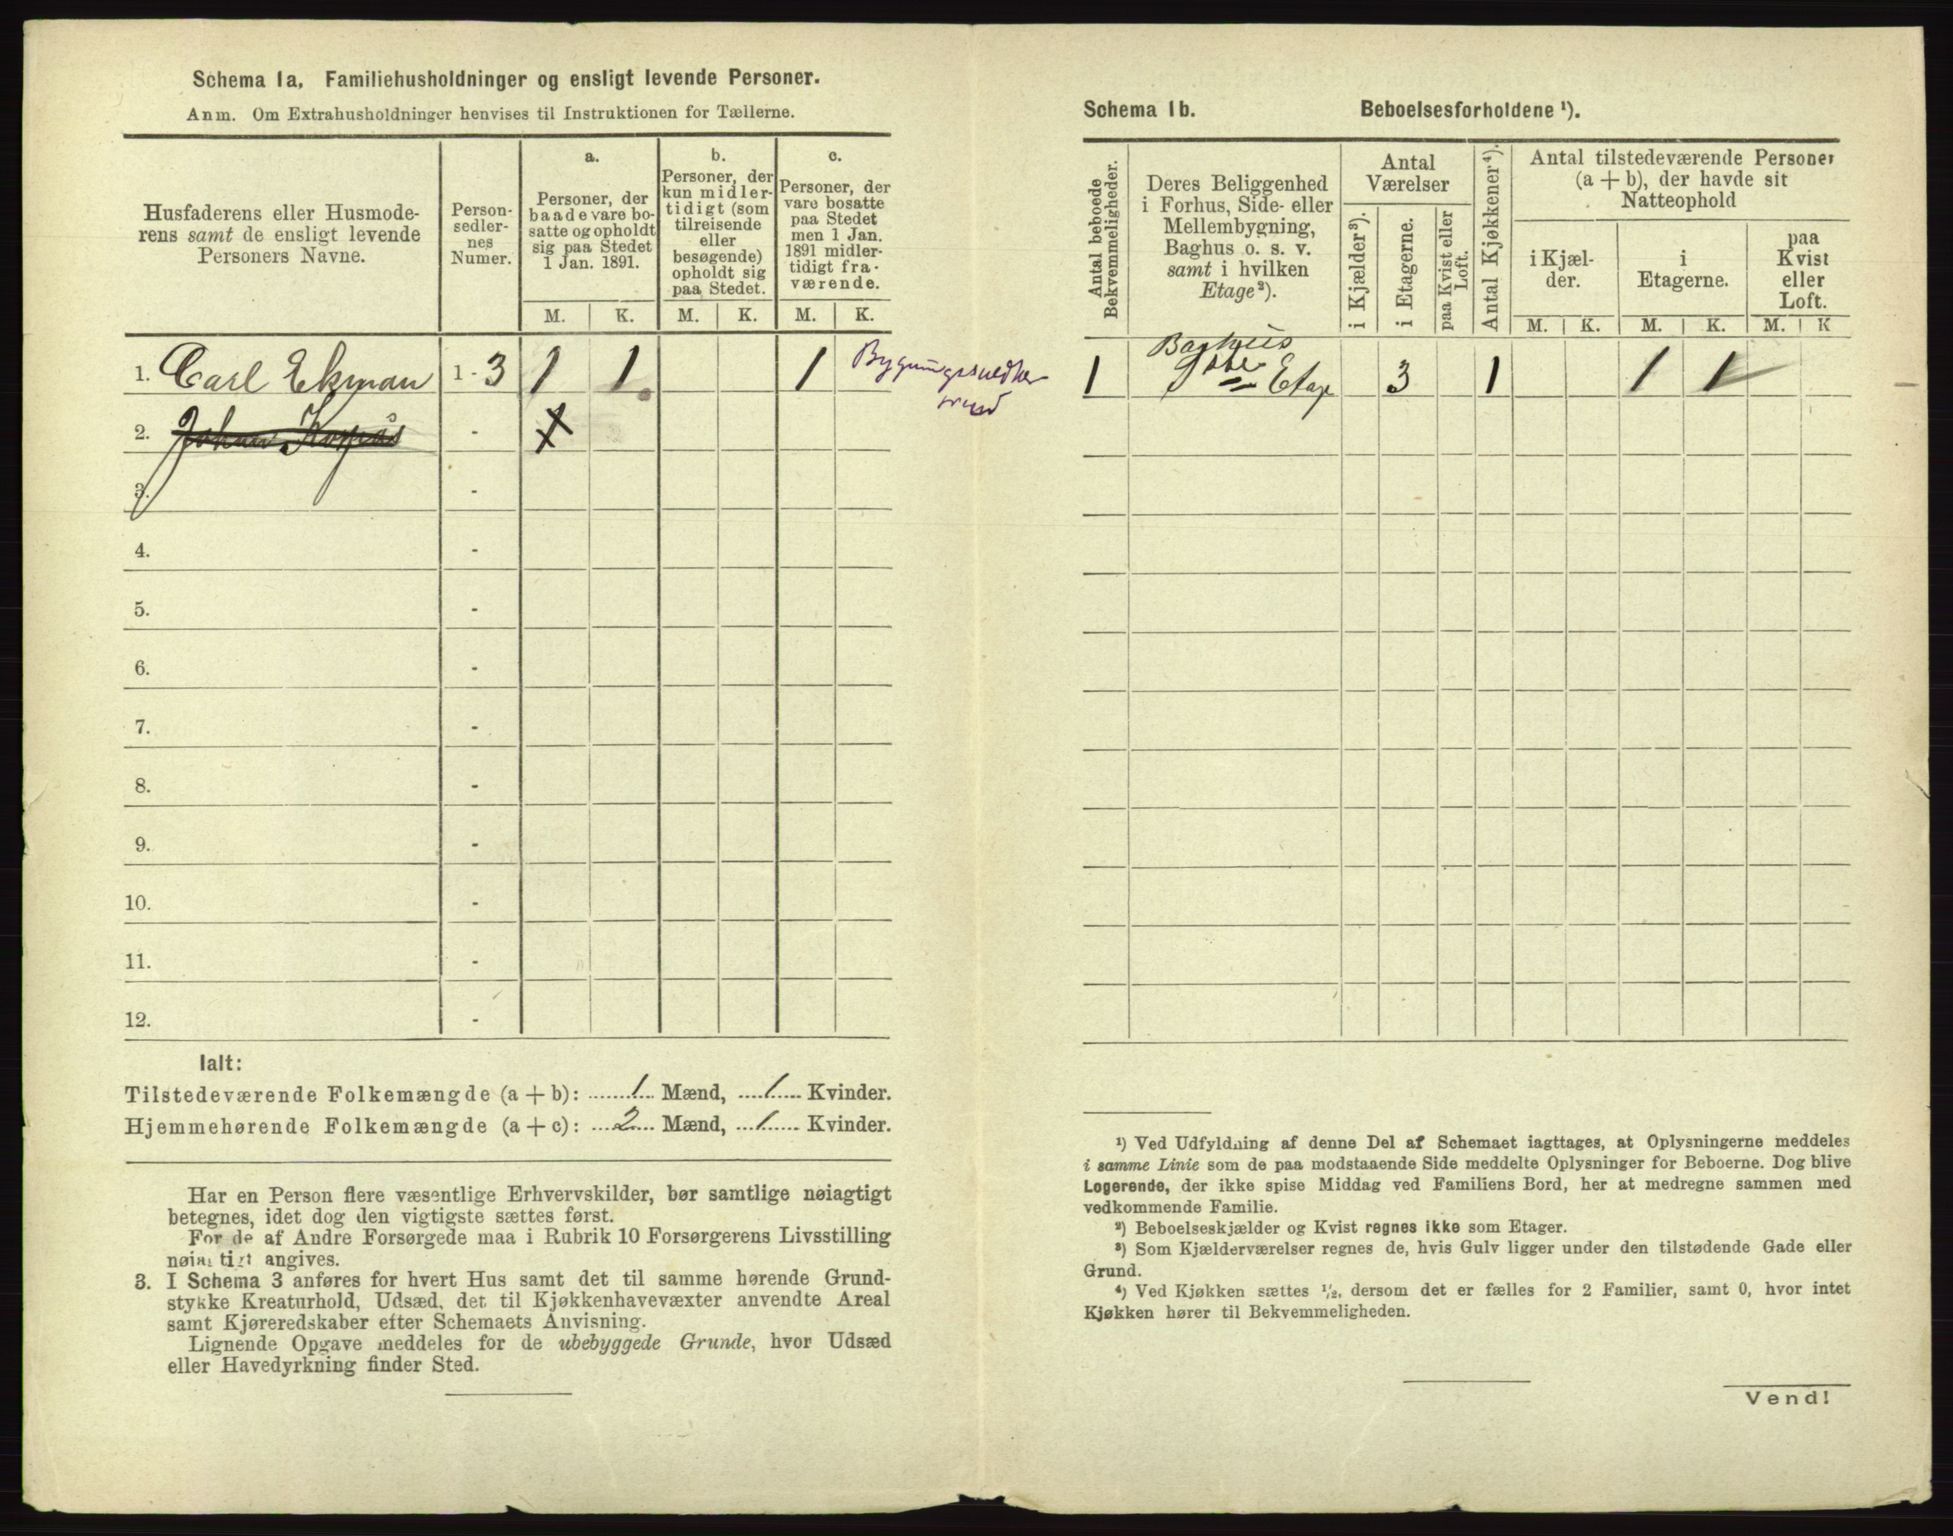 Schema 1a. Familiehusholdninger og ensligt levende Personer.
Anm. Om Extrahusholdninger henvises til Instruktionen for Tællerne.
Husfaderens eller Husmode-
rens samt de ensligt levende
Personers Navne.
Person-
sedler-
nes
Numer.
a.
Personer, der
baade vare bo-
satte og opholdt
sig paa Stedet
1 Jan. 1891.
b.
Personer, der
kun midler-
tidigt (som
tilreisende
eller
besøgende)
opholdt sig
paa Stedet.
c.
Personer, der
vare bosatte
paa Stedet
men 1 Jan.
1891 midler-
tidigt fra-
værende.
M. K. M. K. M. K.
1. Carl Ekman 1 - 3 1 1 1
2. Johan -
3. -
4. -
5. -
6. -
7. -
8. -
9. -
10. -
11. -
12. -
Ialt:
Tilstedeværende Folkemængde (a + b): 1 Mænd, 1 Kvinder.
Hjemmehørende Folkemængde (a + c): 2 Mænd, 1 Kvinder.
Har en Person flere væsentlige Erhvervskilder, bør samtlige nøiagtigt
betegnes, idet dog den vigtigste sættes først.
For de af Andre Forsørgede maa i Rubrik 10 Forsørgerens Livsstilling
nøiagtigt angives.
3. I Schema 3 anføres for hvert Hus samt det til samme hørende Grund-
stykke Kreaturhold, Udsæd, det til Kjøkkenhavevæxter anvendte Areal
samt Kjøreredskaber efter Schemaets Anvisning.
Lignende Opgave meddeles for de ubebyggede Grunde, hvor Udsæd
eller Havedyrkning finder Sted.
Schema 1b. Beboelsesforholdene ¹).
Antal beboede
Bekvemmeligheder.
Deres Beliggenhed
i Forhus, Side- eller
Mellembygning,
Baghus o. s. v.
samt i hvilken
Etage²).
Antal
Værelser
i Kjælder³).
i Etagerne.
paa Kvist eller
Loft.
Antal Kjøkkener⁴).
Antal tilstedeværende Personer
(a + b), der havde sit
Natteophold
i Kjæl-
der.
i
Etagerne.
paa
Kvist
eller
Loft.
M. K. M. K. M. K
Baghus
1 1ste Etage 3 1 1 1
¹) Ved Udfyldning af denne Del af Schemaet iagttages, at Oplysningerne meddeles
i samme Linie som de paa modstaaende Side meddelte Oplysninger for Beboerne. Dog blive
Logerende, der ikke spise Middag ved Familiens Bord, her at medregne sammen med
vedkommende Familie.
²) Beboelseskjælder og Kvist regnes ikke som Etager.
³) Som Kjælderværelser regnes de, hvis Gulv ligger under den tilstødende Gade eller
Grund.
⁴) Ved Kjøkken sættes ½, dersom det er fælles for 2 Familier, samt 0, hvor intet
Kjøkken hører til Bekvemmeligheden.
Vend!